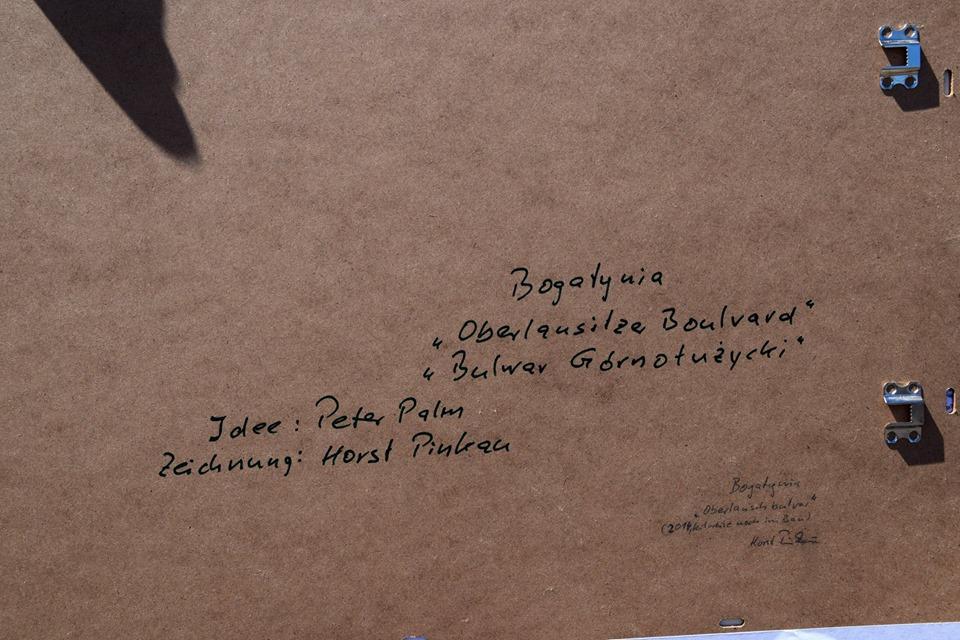 Bogatynia
„Oberlausitzer Boulvard“
„Bulwar Górnołużycki“
Idee: Peter Palm
Zeichnung: Horst Pinkau
Bogatynia
(2014, noch im Bau)
Horst